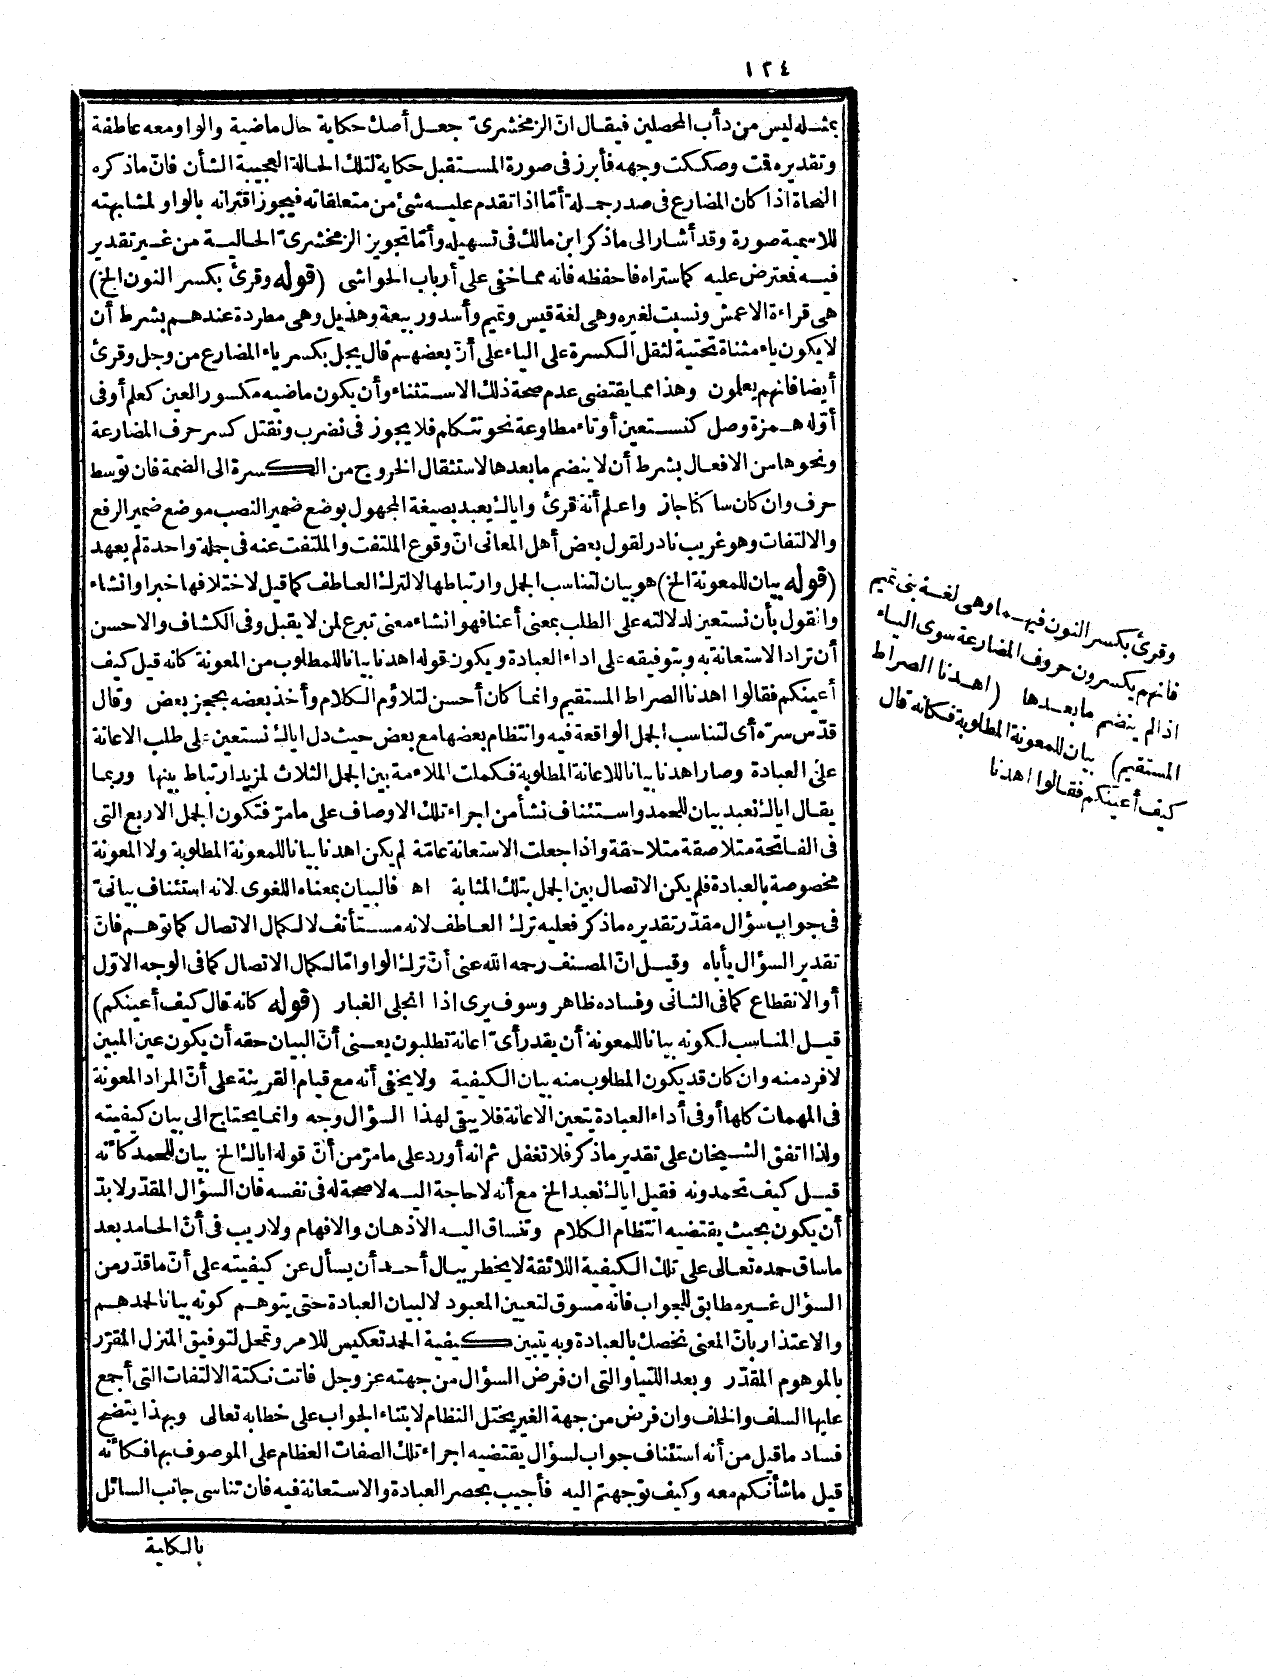 ١٢٤
بمثله ليس من دأب المحصلين فيقال انّ الزمخشرىّ جعل أصك حكاية حال ماضية والواو معه عاطفة
وتقديره قمت وصككت وجهه فأبرز فى صورة المستقبل حكاية لتلك الحالة العجيبة الشأن فانّ ما ذكره
النحاة اذا كان المضارع فى صدر جملة أمّا اذا تقدم عليه شئ من متعلقاته فيجوز اقترانه بالواو لمشابهته
للاسمية صورة وقد أشار الى ما ذكر ابن مالك فى تسهيله وأمّا تجويز الزمخشرىّ الحالية من غير تقدير
فيه فمعترض عليه كما ستراه فاحفظه فانه مما خفى على أرباب الحواشى (قوله وقرئ بكسر النون الخ)
هى قراءة الاعمش ونسبت لغيره وهى لغة قيس وتميم وأسد وربيعة وهذيل وهى مطردة عندهم بشرط أن
لا يكون ياء مثناة تحتية لثقل الكسرة على الياء على أنّ بعضهم قال يجل بكسر ياء المضارع من وجل وقرئ
أيضا فانهم يعلمون وهذا مما يقتضى عدم صحة ذلك الاستثناء وأن يكون ماضيه مكسور العين كعلم أو فى
أوّله همزة وصل كنستعين أو تاء مطاوعة نحو تتكلم فلا يجوز فى نضرب ونقتل كسر حرف المضارعة
ونحوها من الافعال بشرط أن لا ينضم ما بعدها لاستثقال الخروج من الكسرة الى الضمة فان توسط
حرف وان كان ساكنا جاز واعلم أنه قرئ واياك يعبد بصيغة المجهول بوضع ضمير النصب موضع ضمير الرفع
والالتفات وهو غريب نادر لقول بعض أهل المعانى انّ وقوع الملتفت والملتفت عنه فى جملة واحدة لم يعهد
(قوله بيان للمعونة الخ) هو بيان لتناسب الجمل وارتباطها لا لترك العاطف كما قيل لاختلافها خبرا وانشاء
والقول بأن نستعين لدلالته على الطلب بمعنى أعنا فهو انشاء معنى تبرع لمن لا يقبل وفى الكشاف والاحسن
أن تراد الاستعانة به وبتوفيقه على اداء العبادة ويكون قوله اهدنا بيانا للمطلوب من المعونة كانه قيل كيف
أعينكم فقالوا اهدنا الصراط المستقيم وانما كان أحسن لتلاؤم الكلام وأخذ بعضه بحجز بعض وقال
قدّس سرّه أى لتناسب الجمل الواقعة فيه وانتظام بعضها مع بعض حيث دل اياك نستعين على طلب الاعانة
على العبادة وصار اهدنا بيانا للاعانة المطلوبة فكملت الملاءمة بين الجمل الثلاث لمزيد ارتباط بينها وربما
يقال اياك نعبد بيان للحمد واستئناف نشأ من اجراء تلك الاوصاف على ما مرّ فتكون الجمل الاربع التى
فى الفاتحة متلاصقة متلاحقة واذا جعلت الاستعانة عامّة لم يكن اهدنا بيانا للمعونة المطلوبة ولا المعونة
مخصوصة بالعبادة فلم يكن الاتصال بين الجمل بتلك المثابة اه فالبيان بمعناه اللغوى لانه استئناف بيانىّ
فى جواب سؤال مقدّر تقديره ما ذكر فعليه ترك العاطف لانه مستأنف لا لكمال الاتصال كما توهم فانّ
تقدير السؤال يأباه وقيل انّ المصنف رحمه الله عنى أنّ ترك الواو امّا لكمال الاتصال كما فى الوجه الاوّل
أو الانقطاع كما فى الثانى وفساده ظاهر وسوف يرى اذا انجلى الغبار (قوله كانه قال كيف أعينكم)
قيل المناسب لكونه بيانا للمعونة أن يقدر أىّ اعانة تطلبون يعنى أنّ البيان حقه أن يكون عين المبين
لا فرد منه وان كان قد يكون المطلوب منه بيان الكيفية ولا يخفى أنه مع قيام القرينة على أنّ المراد المعونة
فى المهمات كلها أو فى أداء العبادة يتعين الاعانة فلا يبقى لهذا السؤال وجه وانما يحتاج الى بيان كيفيته
ولذا اتفق الشيخان على تقدير ما ذكر فلا تغفل ثم انه أورد على ما مرّ من أنّ قوله اياك الخ بيان للحمد كأنه
قيل كيف تحمدونه فقيل اياك نعبد الخ مع أنه لا حاجة اليه لا صحة له فى نفسه فان السؤال المقدّر لا بدّ
أن يكون بحيث يقتضيه انتظام الكلام وتنساق اليه الاذهان والافهام ولا ريب فى أنّ الحامد بعد
ما ساق حمده تعالى على تلك الكيفية اللائقة لا يخطر ببال أحد أن يسأل عن كيفيته على أنّ ما قدّر من
السؤال غير مطابق للجواب فانه مسوق لتعيين المعبود لا لبيان العبادة حتى يتوهم كونه بيانا لحمدهم
والاعتذار بانّ المعنى نخصك بالعبادة وبه يتبين كيفية الحمد تعكيس للامر وتمحل لتوفيق المنزل المقرّر
بالموهوم المقدّر وبعد اللتيا والتى ان فرض السؤال من جهته عز وجل فاتت نكتة الالتفات التى أجمع
عليها السلف والخلف وان فرض من جهة الغير يختل النظام لابتناء الجواب على خطابه تعالى وبهذا يتضح
فساد ما قيل من أنه استئناف جواب لسؤال يقتضيه اجراء تلك الصفات العظام على الموصوف بها فكأنه
قيل ما شأنكم معه وكيف توجهتم اليه فأجيب بحصر العبادة والاستعانة فيه فان تناسى جانب السائل
بالكلية
وقرئ بكسر النون فيهما وهى لغة بنى تميم
فانهم يكسرون حروف المضارعة سوى الياء
اذا لم ينضم ما بعدها (اهدنا الصراط
المستقيم) بيان للمعونة المطلوبة فكانه قال
كيف أعينكم فقالوا اهدنا